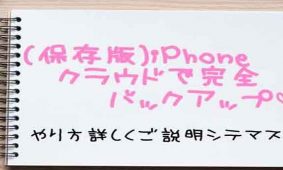 (保存版)iPhone
クラウドで完全
バックアップ♡
やり方詳しくご説明シテマス